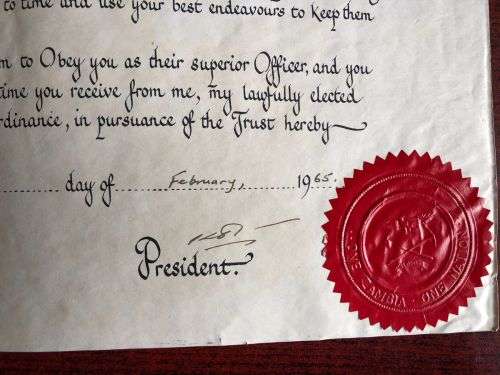 to time and use your best endeavours to keep them
m to Obey you as their superior Officer, and you
time you receive from me, my lawfully elected
rdinance, in pursuance of the Trust hereby
day of February, 1965.
President.
ONE ZAMBIA · ONE NATION